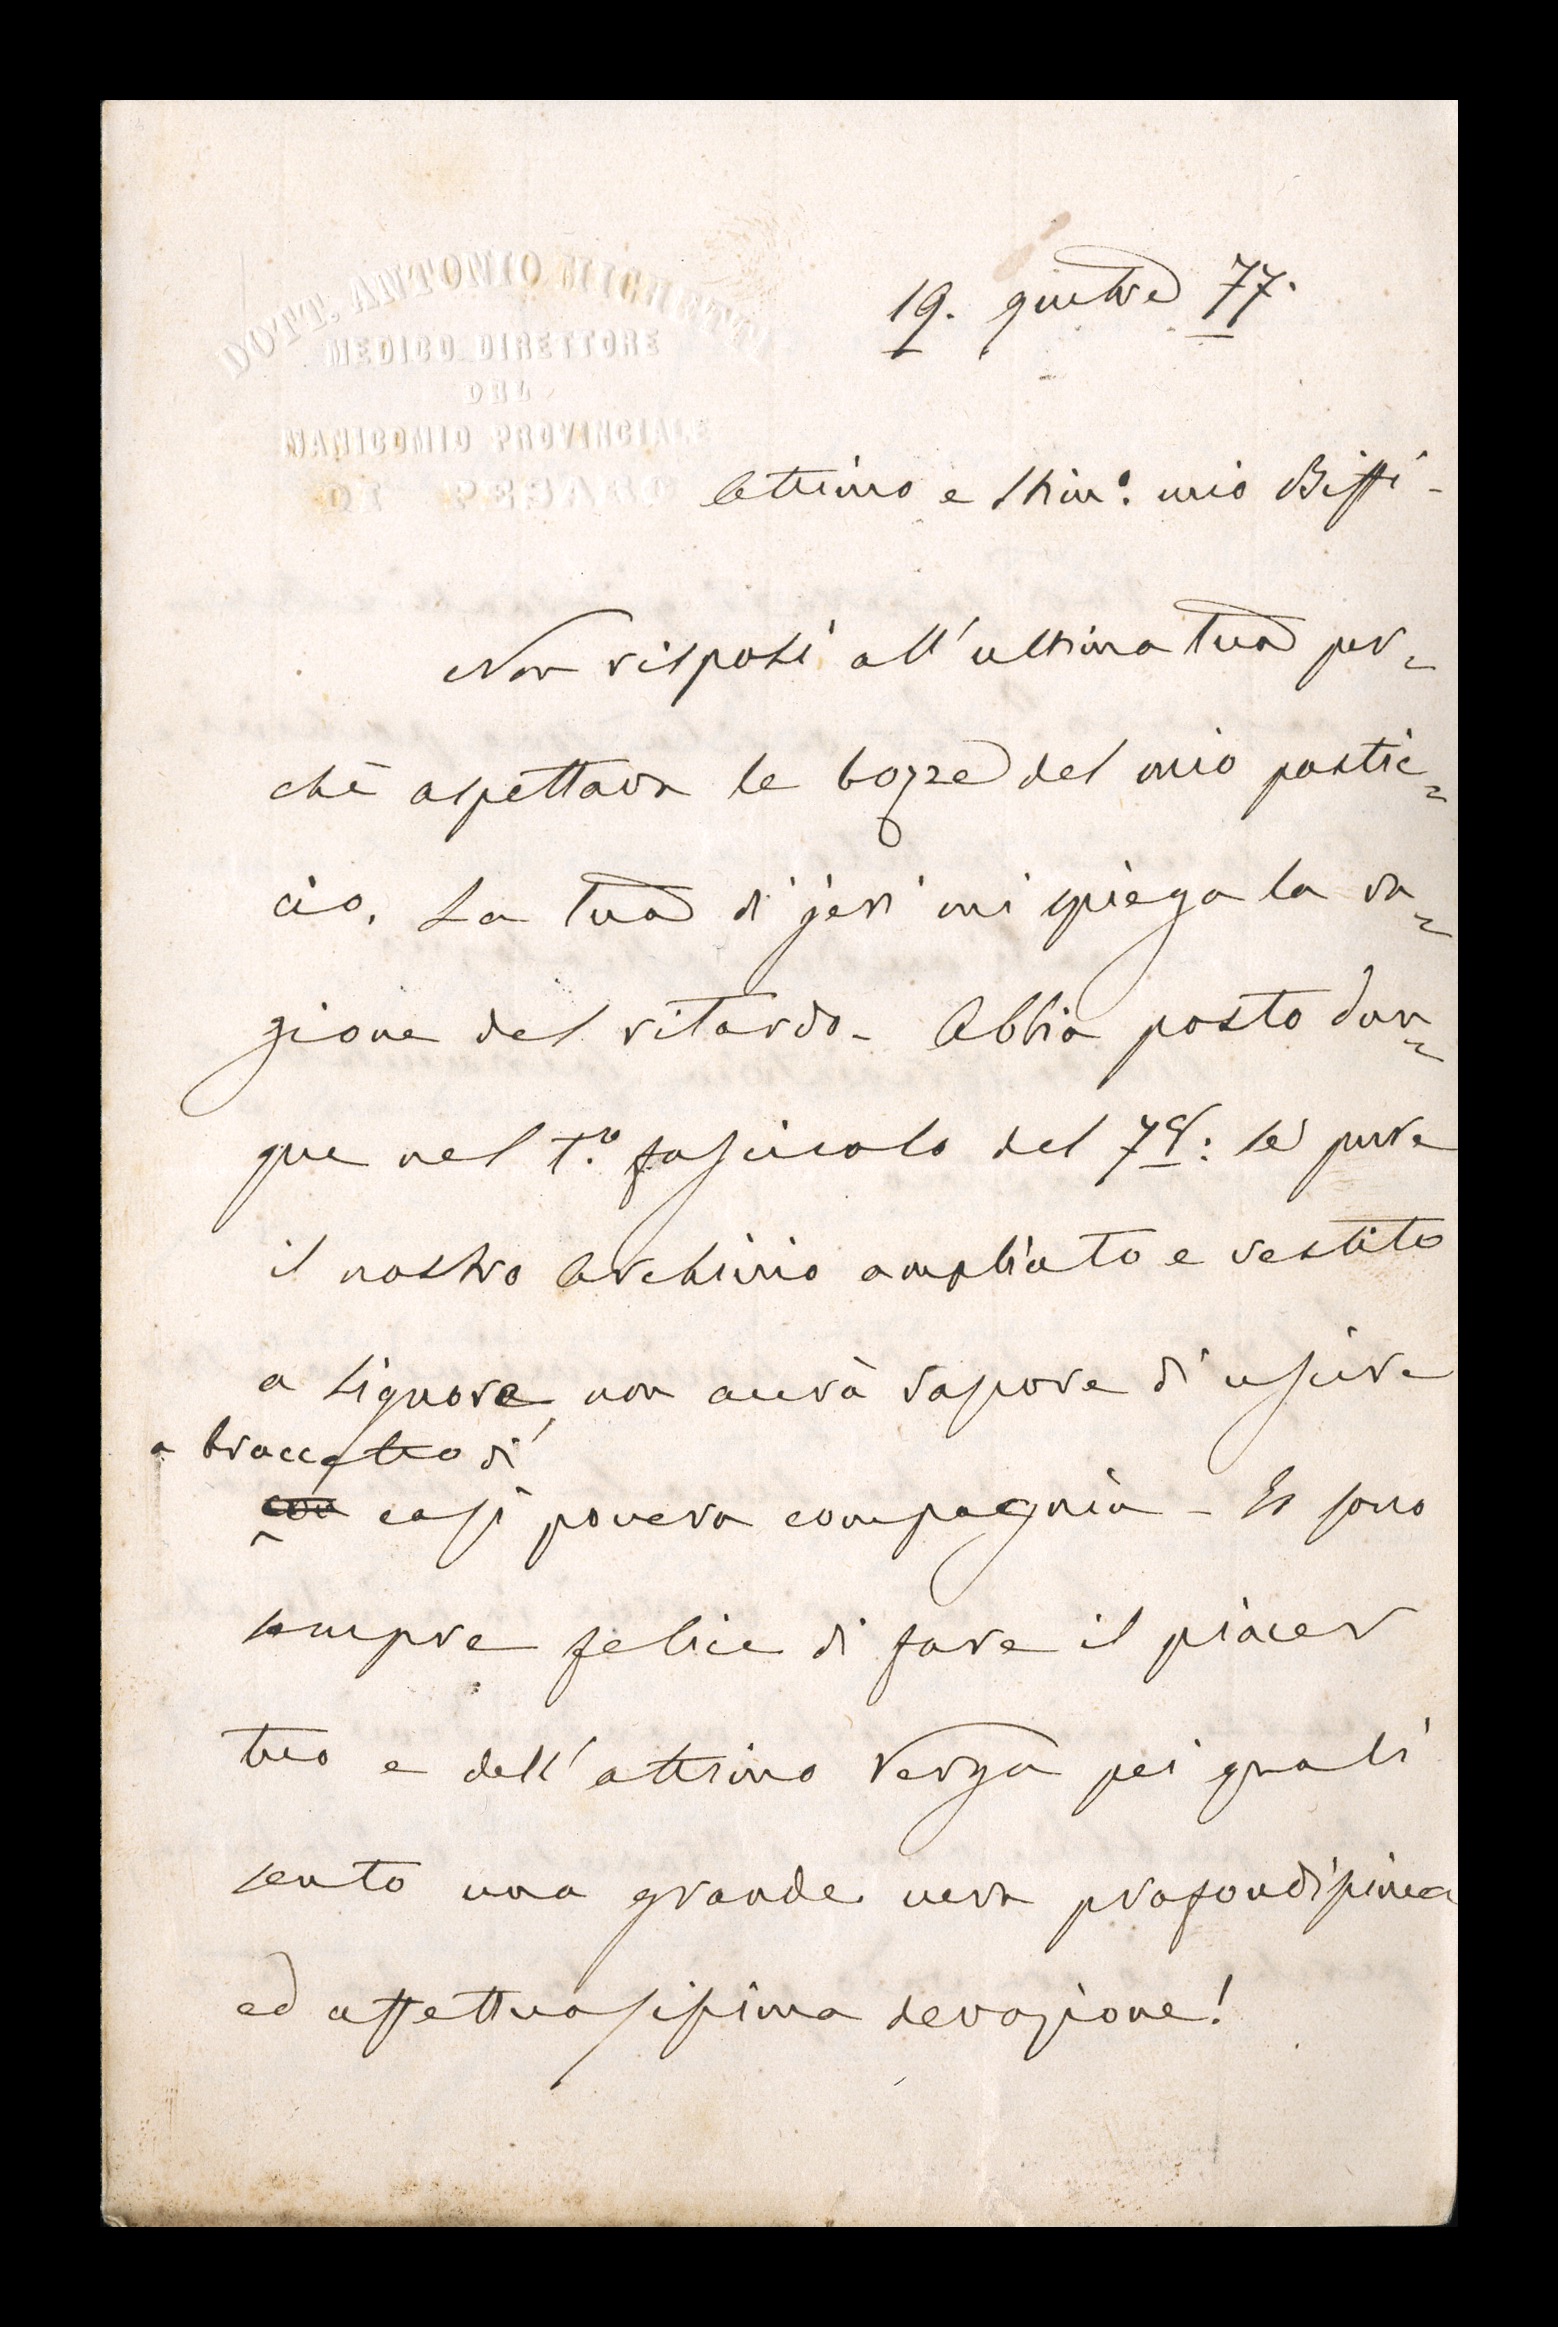 DOTT. ANTONIO MICHETTI
MEDICO DIRETTORE
DEL
MANICOMIO PROVINCIALE
DI PESARO
19. 77.
Ottimo e Stim.º mio Biffi -
Non risposi all'ultima tua per=
chè aspettava le bozze del mio pastic=
cio. La tua di jeri mi spiega la ra=
gione del ritardo - Abbia posto dun=
que nel 1.º fascicolo del 78: se pure
il nostro Archivio ampliato e vestito
a Signore, non avrà rapore di uscire
a braccetto di
con così povera compagnia - Io sono
sempre felice di fare il piacer
tuo e dell'ottimo Verga pei quali
sento una grande vera profondissima
ed affettuosissima devozione!